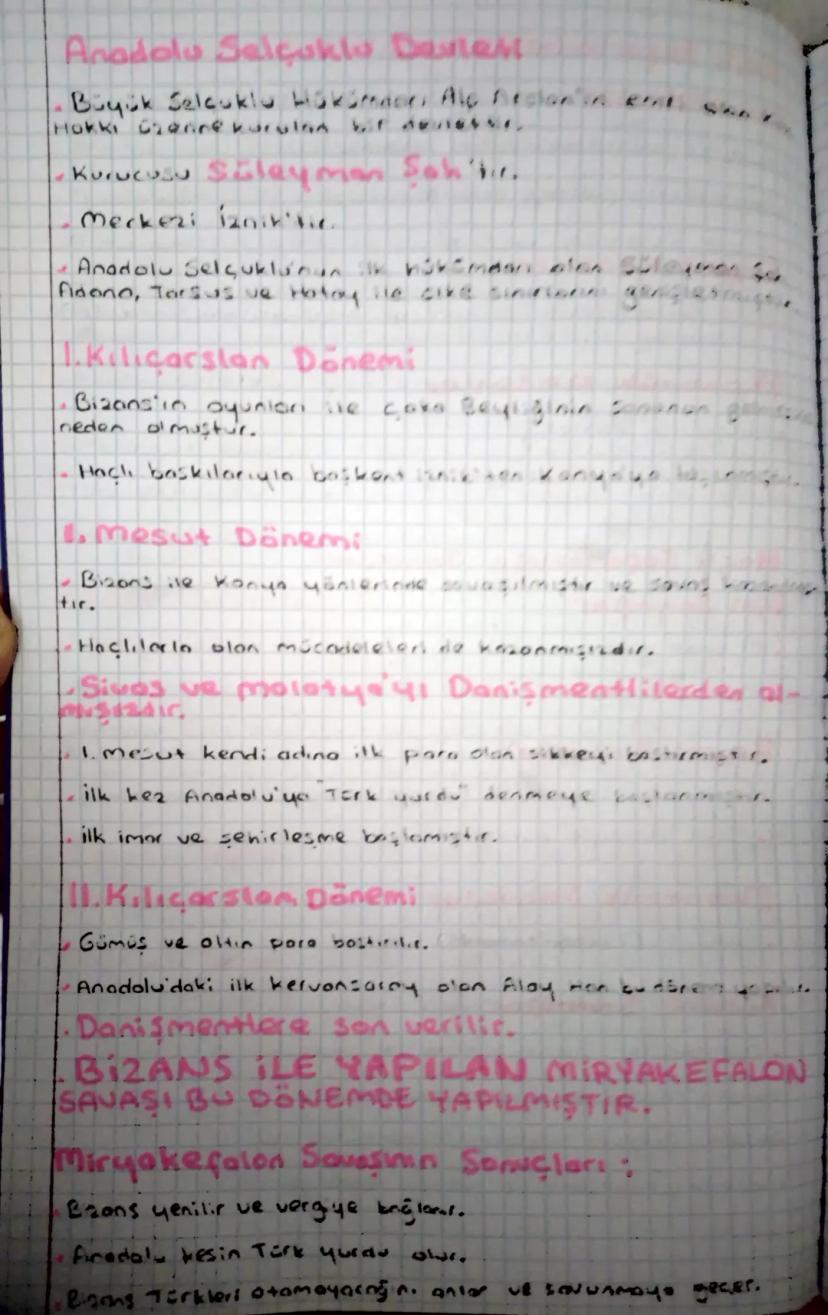 Anadolu Selçuklu Devleti
. Büyük Selçuklu Hükümdarı Alp Arslan'ın
Hakkı üzerine kurulan bir devlettir.
. Kurucusu Süleyman Şah'tır.
. Merkezi İznik'tir.
. Anadolu Selçuklu'nun ilk hükümdarı olan Süleyman Şa
Adana, Tarsus ve Hatay ile sınırlarını genişletmiştir.
I. Kılıçarslan Dönemi
. Bizans'ın oyunları ile Çaka Beyliğinin sonunun
neden olmuştur.
. Haçlı baskılarıyla başkent İznik'ten Konya'ya taşınmıştır.
I. Mesut Dönemi
. Bizans ile Konya yönlerinde savaşılmıştır ve savaş
tır.
. Haçlılarla olan mücadeleleri de kazanmışızdır.
. Sivas ve Malatya'yı Danişmentlilerden al-
mışızdır.
. I. Mesut kendi adına ilk para olan sikkeyi bastırmıştır.
. İlk kez Anadolu'ya "Türk yurdu" denmeye başlanmıştır.
. İlk imar ve şehirleşme başlamıştır.
II. Kılıçarslan Dönemi
. Gümüş ve altın para bastırılır.
. Anadolu'daki ilk kervansaray olan Alay Han
. Danişmentlere son verilir.
. BİZANS İLE YAPILAN MİRYAKEFALON
SAVAŞI BU DÖNEMDE YAPILMIŞTIR.
Miryakefalon Savaşının Sonuçları :
. Bizans yenilir ve vergiye bağlanır.
. Anadolu kesin Türk yurdu olur.
. Bizans Türkleri atamayacağını anlar ve savunmaya geçer.